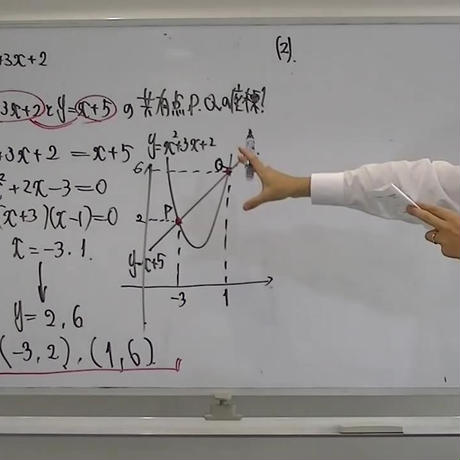 +3x+2
(2).
3x+2とy=x+5の共有点P.Qの座標?
+3x+2=x+5
²+2x-3=0
(x+3)(x-1)=0
x=-3.1
↓
y=2,6
(-3,2),(1,6)
y=x²+3x+2
6
Q
2
P
y=x+5
-3
1